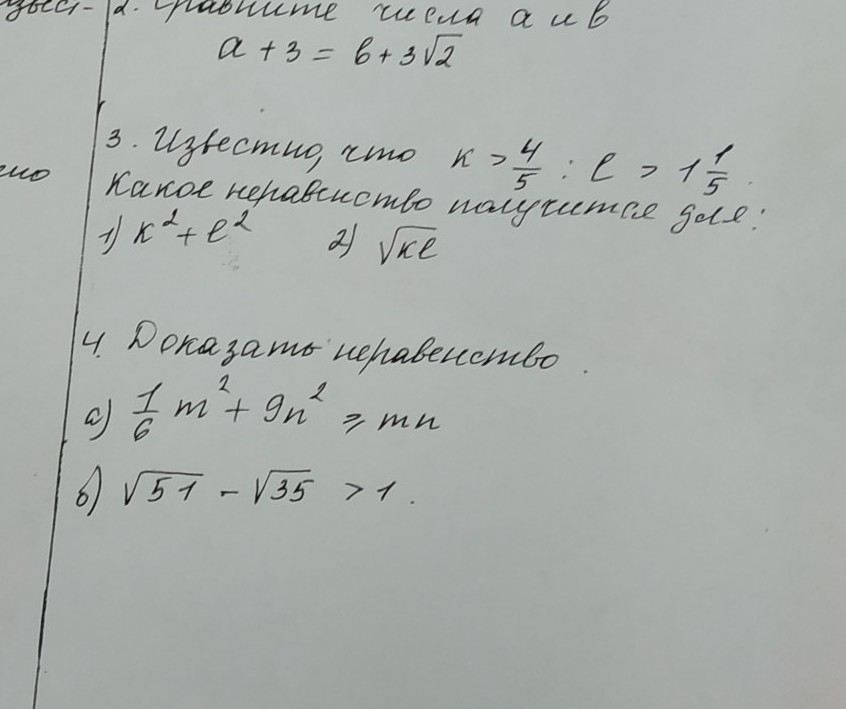 2. Сравните числа a и b
a + 3 = b + 3√2
3. Известно, что к > 4/5 : l > 1 1/5.
Какое неравенство получится для:
1) к² + l² 2) √кl
4. Доказать неравенство.
а) 1/6 m² + 9n² ≥ mn
б) √51 - √35 > 1.